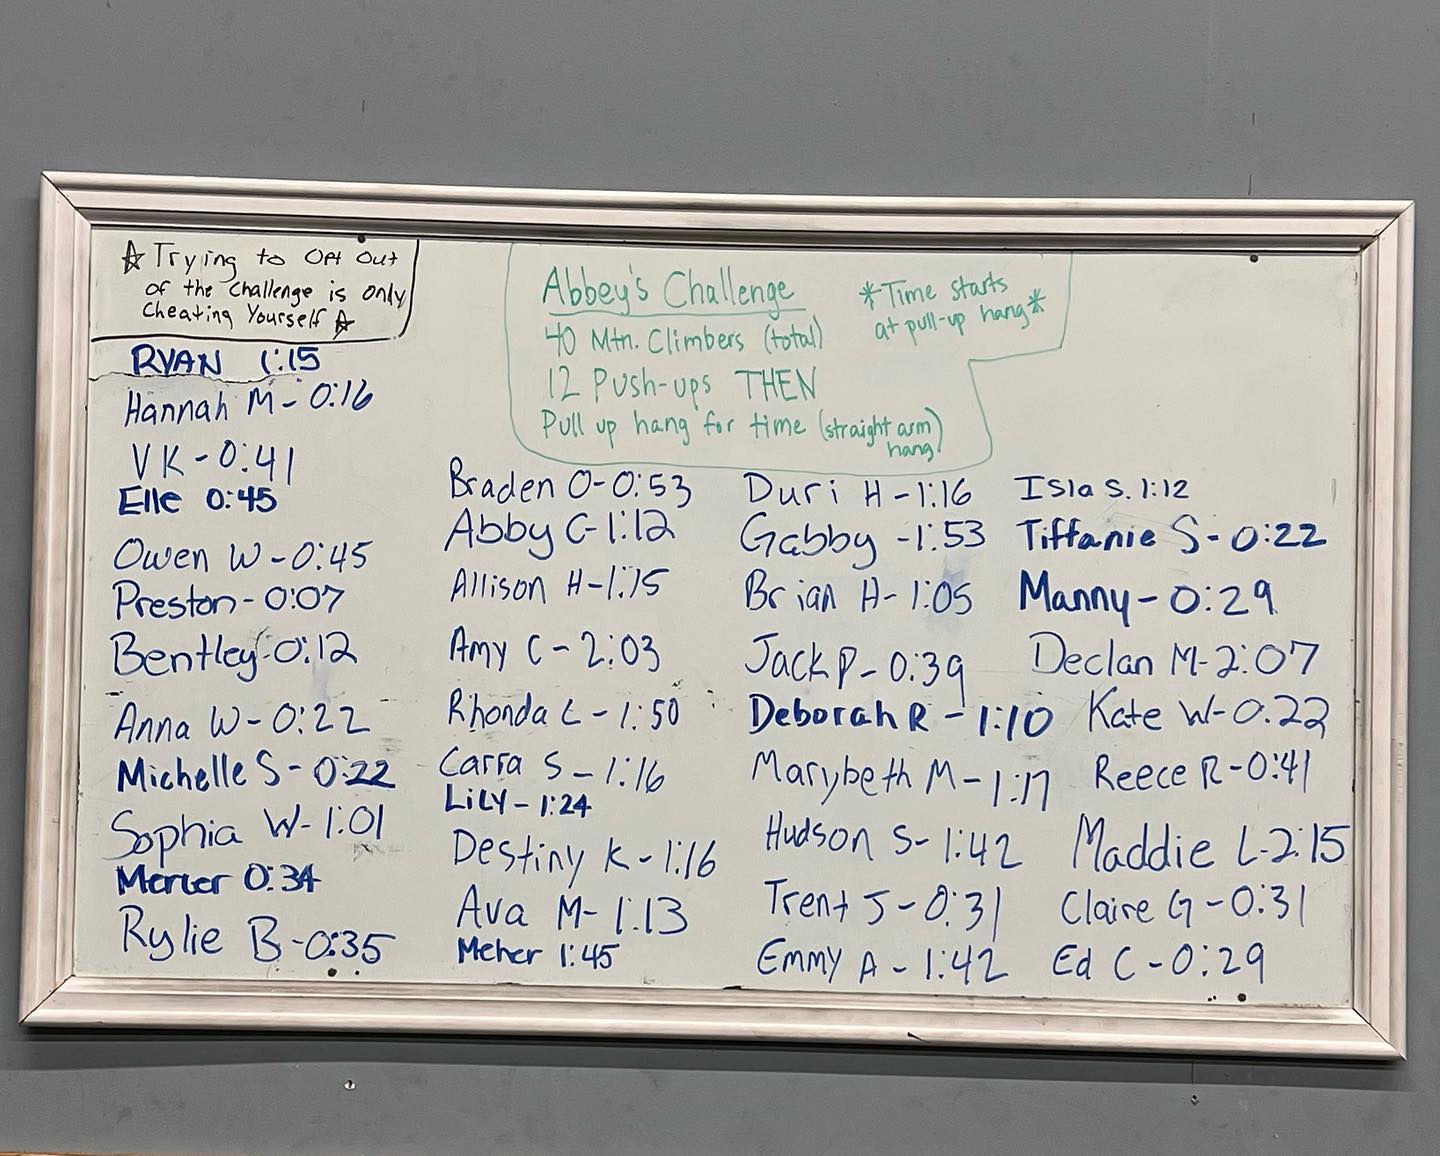 ☆ Trying to Opt Out
of the challenge is only
Cheating Yourself ☆
Abbey's Challenge
40 Mtn. Climbers (total)
12 Push-ups THEN
Pull up hang for time (straight arm
hang)
*Time starts
at pull-up hang*
RYAN 1:15
Hannah M - 0:16
VK - 0:41
Elle 0:45
Owen W - 0:45
Preston - 0:07
Bentley - 0:12
Anna W - 0:22
Michelle S - 0:22
Sophia W - 1:01
Mercer 0:34
Rylie B - 0:35
Braden O - 0:53
Abby G - 1:12
Allison H - 1:15
Amy C - 2:03
Rhonda L - 1:50
Carra S - 1:16
LiLY - 1:24
Destiny K - 1:16
Ava M - 1:13
Meher 1:45
Duri H - 1:16
Gabby - 1:53
Brian H - 1:05
Jack P - 0:39
Deborah R - 1:10
Marybeth M - 1:17
Hudson S - 1:42
Trent J - 0:31
Emmy A - 1:42
Isla S. 1:12
Tiffanie S - 0:22
Manny - 0:29
Declan M - 2:07
Kate W - 0:22
Reece R - 0:41
Maddie L - 2:15
Claire G - 0:31
Ed C - 0:29